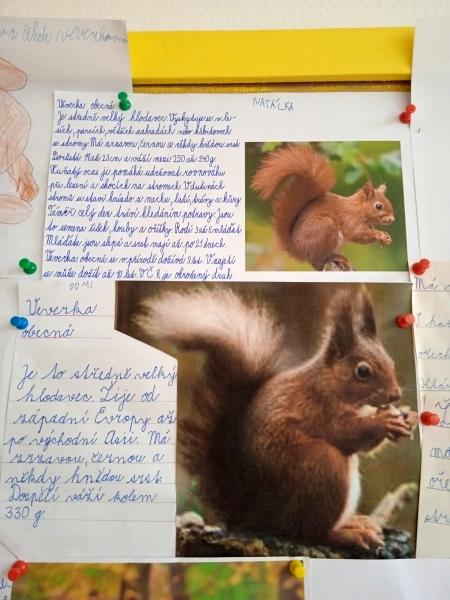 z čeledi veverkovi
NATÁLKA
Veverka obecná
Je středně velký hlodavec. Vyskytuje se v le-
sích, parcích, větších zahradách nebo hřbitovech
se stromy. Má zrzavou, černou a někdy hnědou srst.
Dorůstá 19 až 23 cm a váží mezi 250 až 340 g.
Huňatý ocas jí pomáhá udržovat rovnováhu
při lezení a skocích na stromech. V dutinách
stromů si staví hnízdo z mechu, listí, trávy a kůry.
Téměř celý den tráví hledáním potravy. Jsou
to semena šišek, houby a oříšky. Rodí 3 až 5 mláďat.
Mláďata jsou slepá a srst mají až po 21 dnech.
Veverka obecná se v přírodě dožívá 3 let. V zajetí
se může dožít až 10 let. V ČR je ohrožený druh.
DOMI
Veverka
obecná
Je to středně velký
hlodavec. Žije od
západní Evropy až
po východní Asii. Má
zrzavou, černou a
někdy hnědou srst.
Dospělí váží kolem
330 g.
Má s